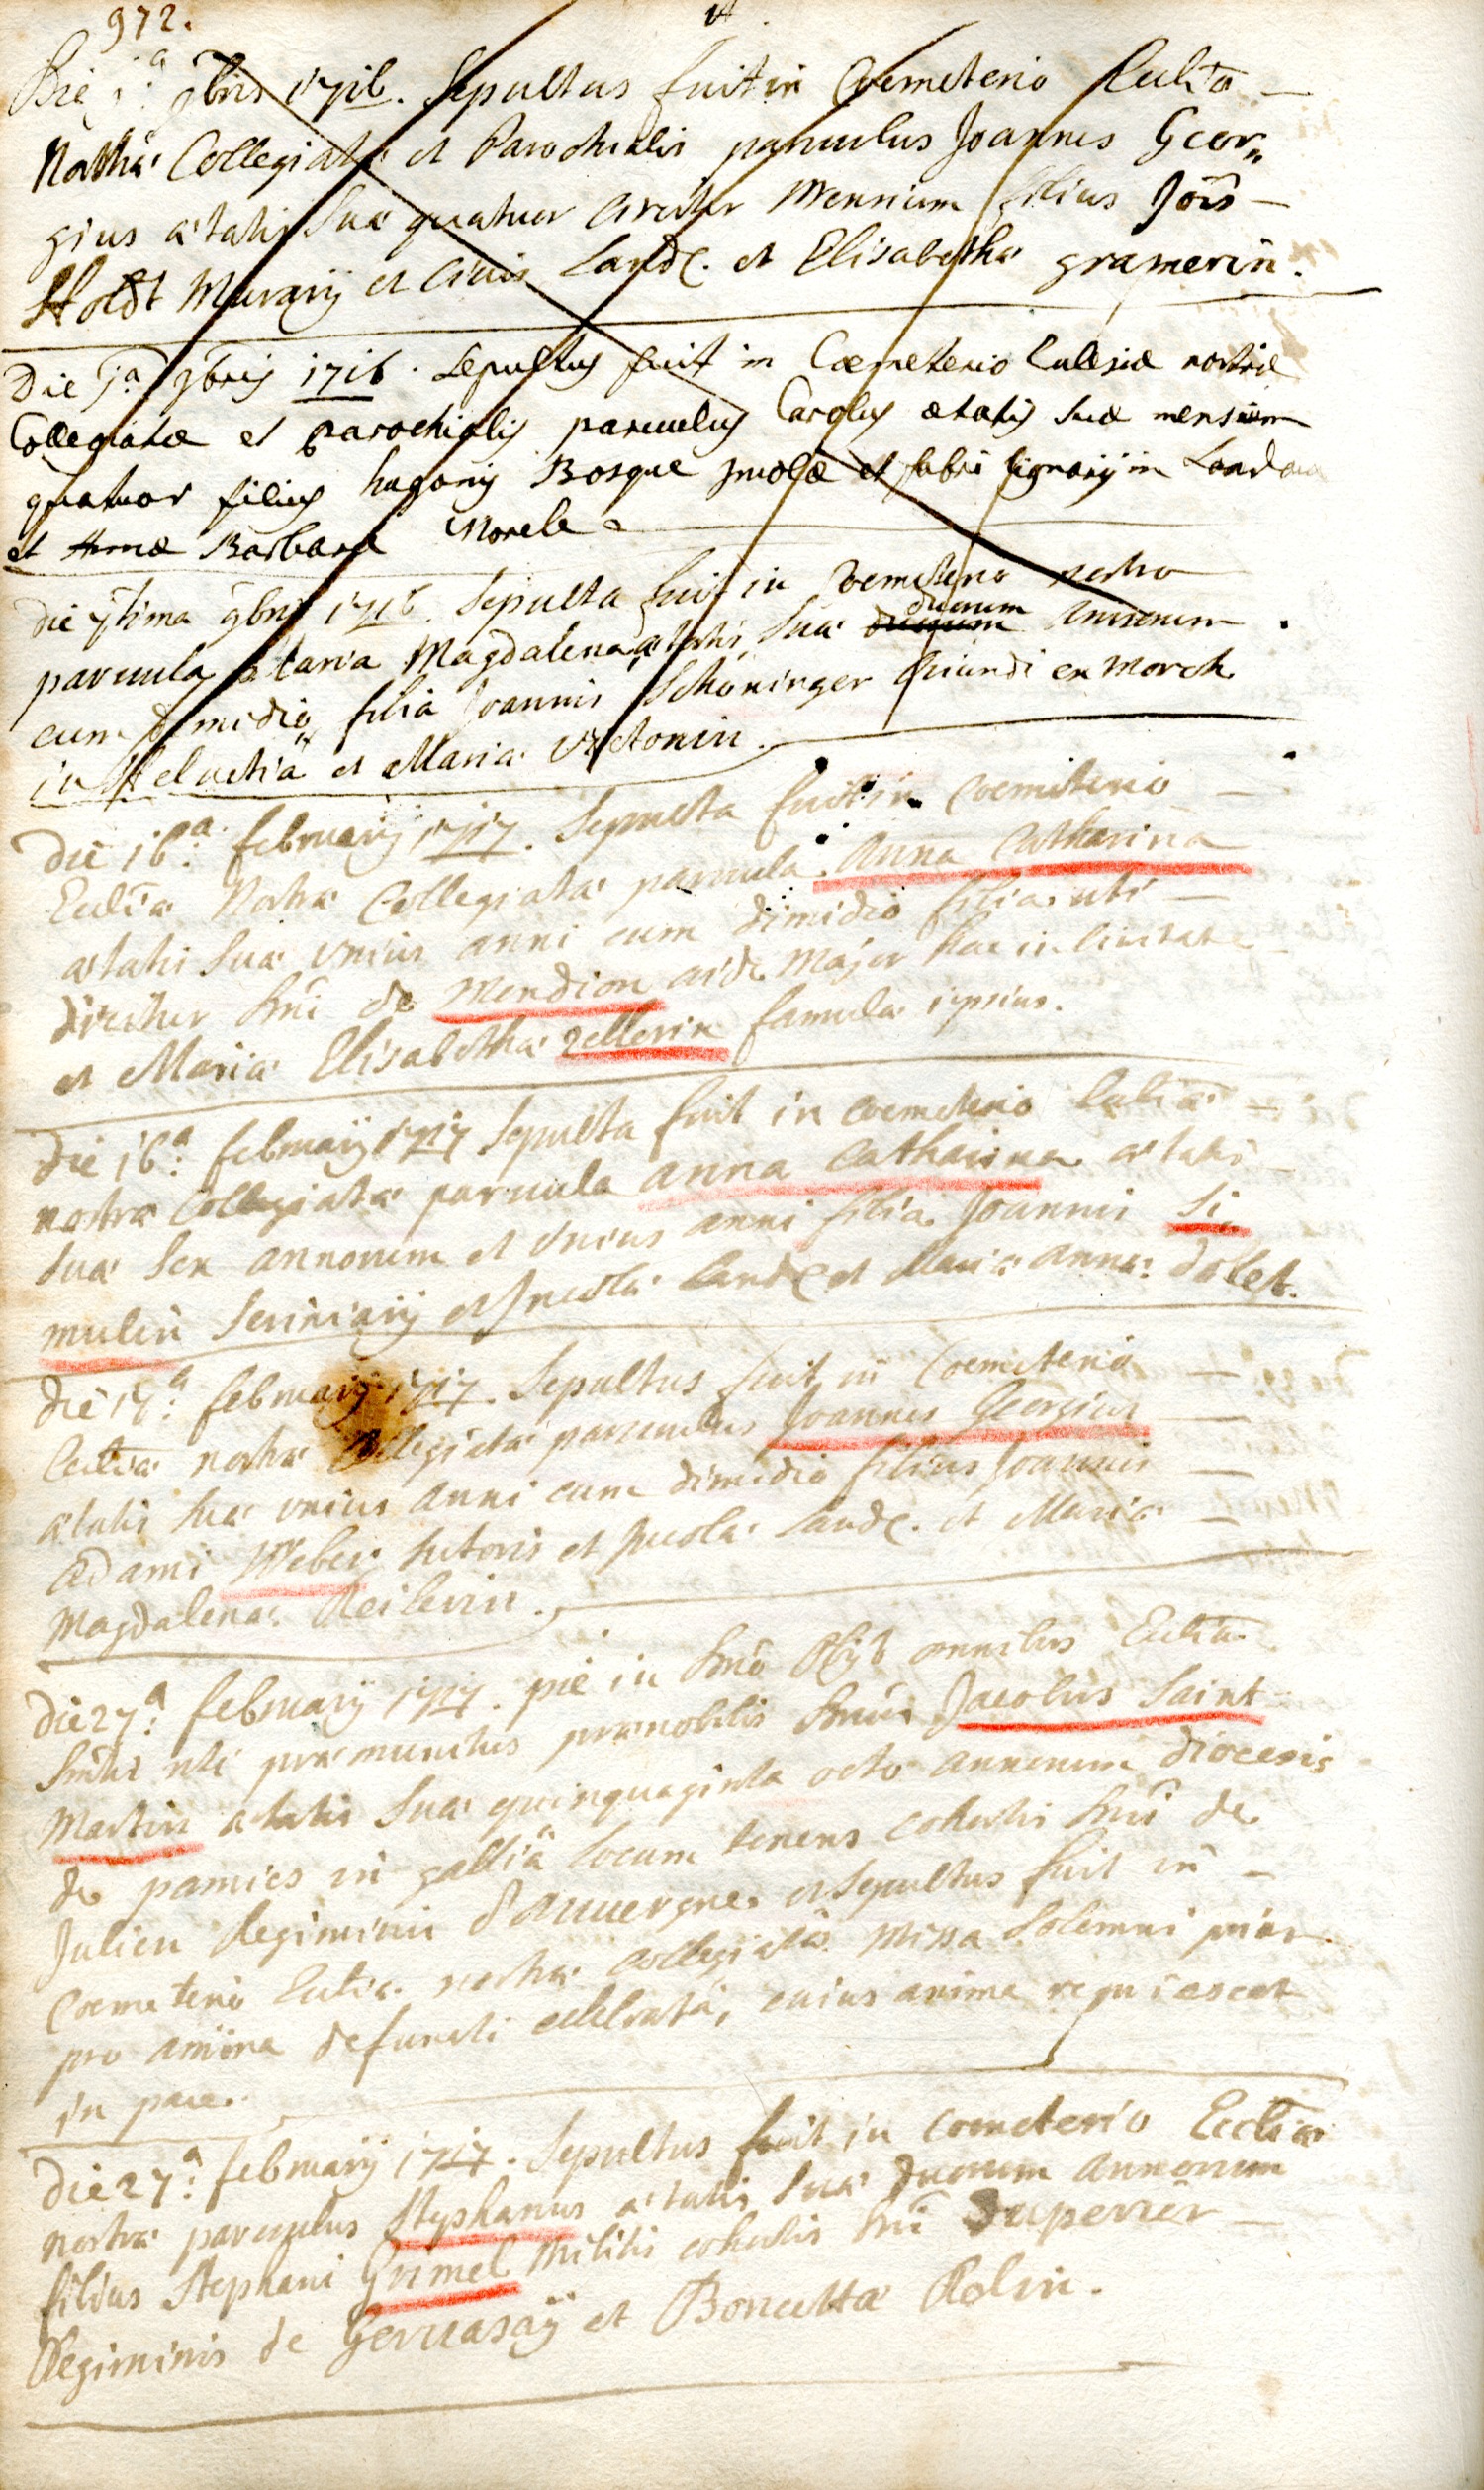 972.
Die 1.a 9bris 1716. Sepultus fuit in Coemeterio Eccliae
Nostrae Collegiatae et Parochialis parvulus Joannes Geor„
gius aetatis Suae quatuor circiter Mensium filius Jois
Holdt Murarij et Civis Landt. et Elisabetha gramerin.
Die 1.a 9bris 1716. Sepultus fuit in Caemeterio Eclesiae nostrae
Collegiatae et parochialis parvulus Carolus aetatis suae mensium
quatuor filius hugonis Bosque Incolae et fabri lignarij in Landau
et Annae Barbara Morele
die 7tima 9bris 1716. Sepulta fuit in Coemeterio nostro
parvula Maria Magdalena aetatis Suae duorum annorum
cum dimidio filia Joannis Schöninger oriundi ex Morch
in Helvetia et Maria
Die 16.a februarij 1717. Sepulta fuit in Coemiterio
Eccliae Nostrae Collegiatae parvula Anna Catharina
aetatis Suae Unius anni cum dimidio filia uti
dicitur Dni de Mendion aide Major hac in Civitate
et Maria Elisabetha Zellerin famula ipsius.
Die 16.a februarij 1717 Sepulta fuit in coemeterio Eccliae
nostrae Collegiatae parvula anna Catharina aetatis
Suae Sex annorum et Unius anni filia Joannis Si„
mulin Scriniarij et Incolae Landt. et Maria anna Dolet.
Die 17.a februarij 1717. Sepultus fuit in Coemeterio
Eccliae nostrae Collegiatae parvulus Joannes Georgius
aetatis Suae unius anni cum dimidio filius Joannis
Adami Weber Sutoris et Incolae Landt. et Maria
Magdalena Reilerin.
Die 27.a februarij 1717. pie in Dno Obijt omnibus Eccliae
Smtis rite praemunitus praenobilis Dnus Jacobus Saint
Martin aetatis Suae quinquaginta octo annorum diocesis
de pamies in gallia Locum tenens cohortis Dni de
Julien Regiminis d'auvergne et Sepultus fuit in
Coemeterio Eccliae nostrae collegiatae Missa Solemni prius
pro anima defuncti celebrata, cuius anima requiescat
in pace.
Die 27.a februarij 1717. Sepultus fuit in coemeterio Eccliae
nostrae parvulus Stephanus aetatis Suae Duorum annorum
filius Stephani Grimel Militis cohortis Dni Duperier
Regiminis de Gervasaij et Boncetta Rolin.